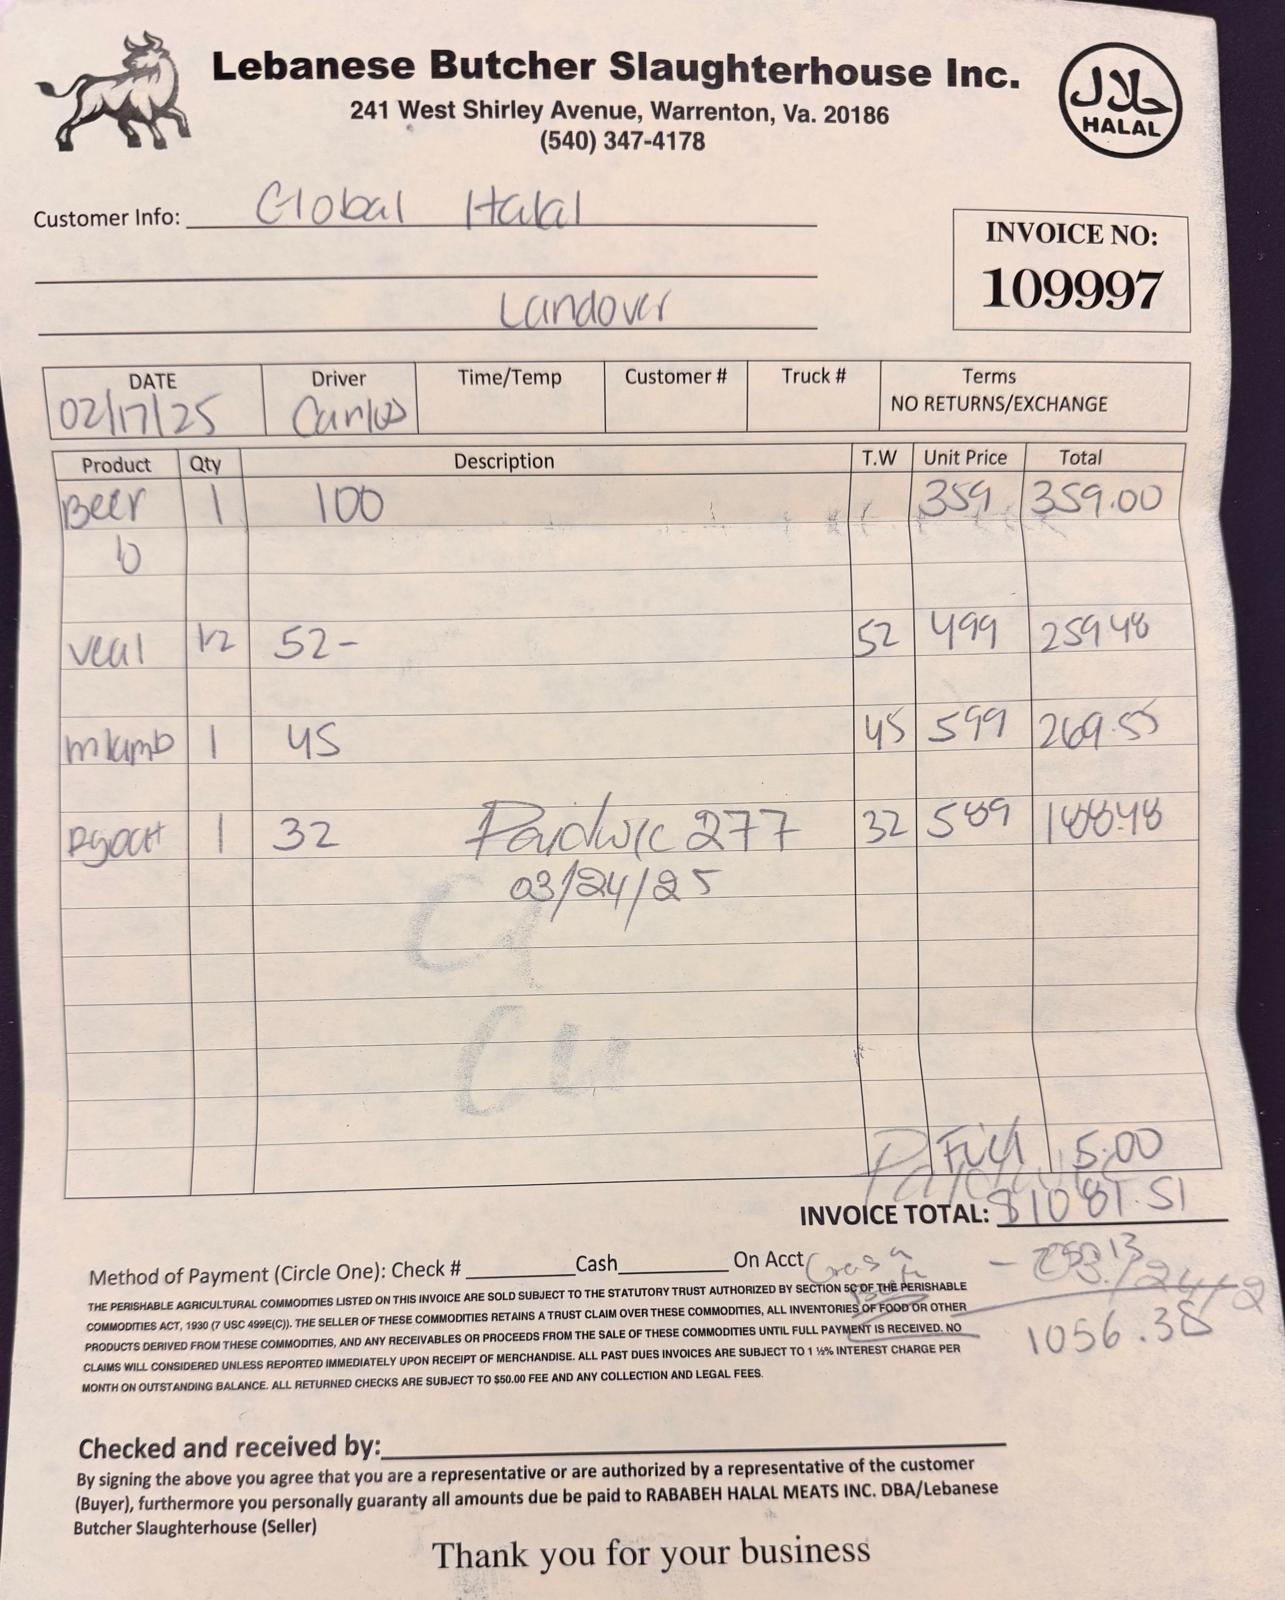 Lebanese Butcher Slaughterhouse Inc.
241 West Shirley Avenue, Warrenton, Va. 20186
(540) 347-4178
حلال
HALAL
Customer Info: Global Halal
Landover
INVOICE NO:
109997
DATE Driver Time/Temp Customer # Truck # Terms
02/17/25 Carlos NO RETURNS/EXCHANGE
Product Qty Description T.W Unit Price Total
Beer 1 100 359 359.00
veal 1/2 52- 52 499 259 48
mlamb 1 45 45 599 269.55
1 32 32 589 188.48
277
03/24/25
5.00
INVOICE TOTAL: $1081.51
Method of Payment (Circle One): Check # Cash On Acct
THE PERISHABLE AGRICULTURAL COMMODITIES LISTED ON THIS INVOICE ARE SOLD SUBJECT TO THE STATUTORY TRUST AUTHORIZED BY SECTION 5C OF THE PERISHABLE
COMMODITIES ACT, 1930 (7 USC 499E(C)). THE SELLER OF THESE COMMODITIES RETAINS A TRUST CLAIM OVER THESE COMMODITIES, ALL INVENTORIES OF FOOD OR OTHER
PRODUCTS DERIVED FROM THESE COMMODITIES, AND ANY RECEIVABLES OR PROCEEDS FROM THE SALE OF THESE COMMODITIES UNTIL FULL PAYMENT IS RECEIVED. NO
CLAIMS WILL CONSIDERED UNLESS REPORTED IMMEDIATELY UPON RECEIPT OF MERCHANDISE. ALL PAST DUES INVOICES ARE SUBJECT TO 1 ½% INTEREST CHARGE PER
MONTH ON OUTSTANDING BALANCE. ALL RETURNED CHECKS ARE SUBJECT TO $50.00 FEE AND ANY COLLECTION AND LEGAL FEES.
1056.38
Checked and received by:
By signing the above you agree that you are a representative or are authorized by a representative of the customer
(Buyer), furthermore you personally guaranty all amounts due be paid to RABABEH HALAL MEATS INC. DBA/Lebanese
Butcher Slaughterhouse (Seller)
Thank you for your business